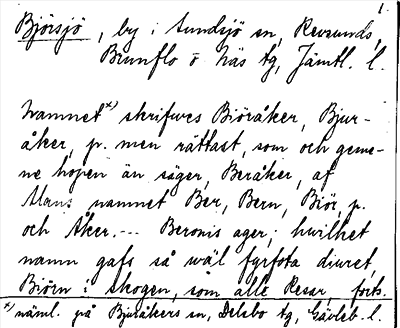 1.
Björsjö, by i Sundsjö sn, Revsunds,
Brunflo o Näs tg, Jämtl. l.
Namnet x) skrifves Biöråker, Bjur-
åker, p. men rättast, som och geme-
ne hopen än säger, Beråker, af
Mans namnet Ber, Bern, Biör, p.
och Åker.--- Beronis ager; hwilket
namn gafs så wäl fyrfota diuret,
Biörn i skogen, som alle Resar, forts.
x) näml. på Bjuråkers sn, Delsbo tg, Gävleb. l.